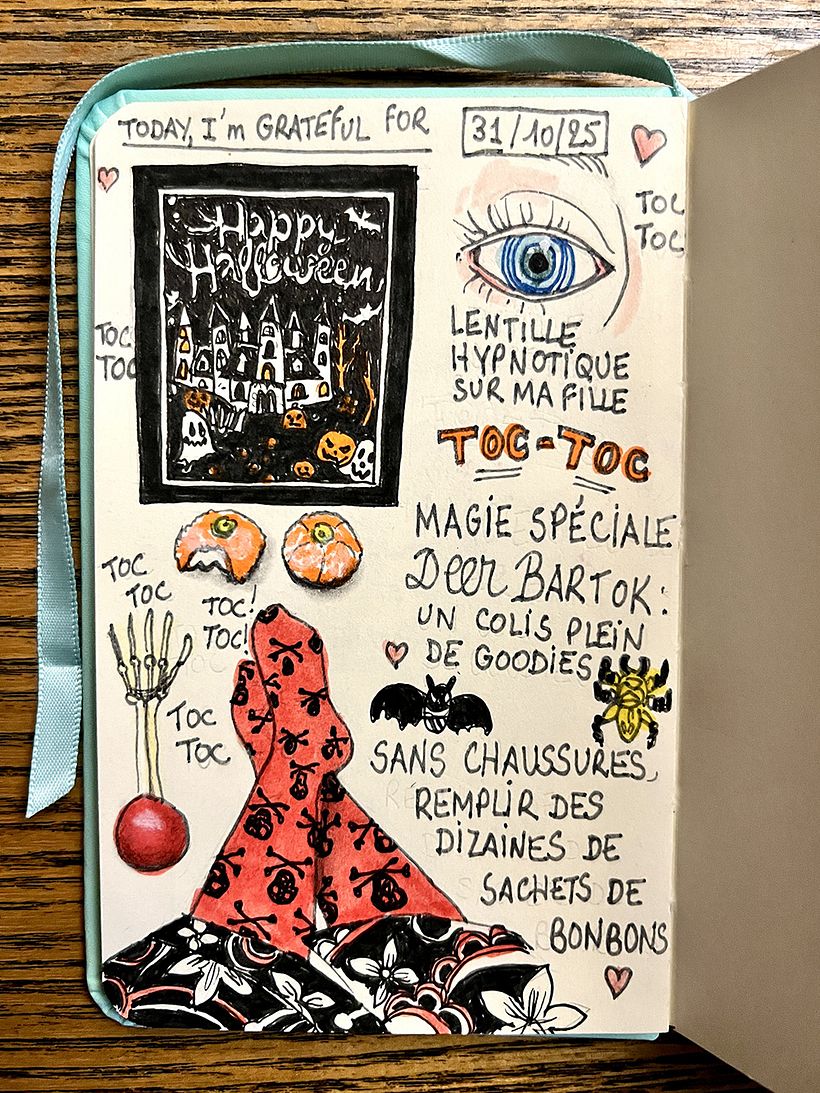 TODAY, I'm GRATEFUL FOR
31/10/25
TOC
TOC
Happy
Halloween
TOC
TOC
LENTILLE
HYPNOTIQUE
SUR MA FILLE
TOC-TOC
MAGIE SPÉCIALE
Deer BARTOK:
UN COLIS PLEIN
DE GOODIES
TOC
TOC
TOC!
TOC!
TOC
TOC
SANS CHAUSSURES,
REMPLIR DES
DIZAINES DE
SACHETS DE
BONBONS